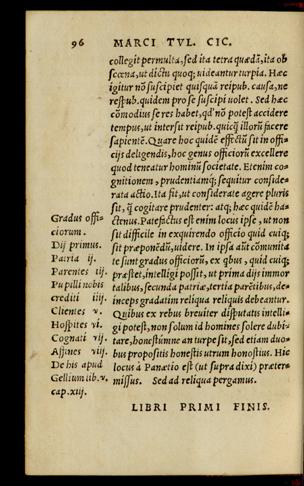 96 MARCI TVL. CIC.
collegit permulta, sed ita tetra quædã, ita ob
scœna, ut dictu quoq; uideantur turpia. Hæc
igitur nõ suscipiet quisquã reipub. causa, ne
respub. quidem pro se suscipi uolet. Sed hæc
cõmodius se res habet, qd' nõ potest accidere
tempus, ut intersit reipub. quicq̃ illorũ facere
sapientẽ. Quare hoc quidẽ effectũ sit in offi-
cijs deligendis, hoc genus officiorũ excellere
quod teneatur hominũ societate. Etenim co-
gnitionem, prudentiamq; sequitur conside-
rata actio. Ita fit, ut considerate agere pluris
sit, q̃ cogitare prudenter: atq; hæc quidẽ ha-
ctenus. Patefactus est enim locus ipse, ut non
sit difficile in exquirendo officio quid cuiq;
sit præponẽdũ, uidere. In ipsa aũt cõmunita
te sunt gradus officiorũ, ex qbus, quid cuiq;
præstet, intelligi possit, ut prima dijs immor
talibus, secunda patriæ, tertia parẽtibus, de-
inceps gradatim reliqua reliquis debeantur.
Quibus ex rebus breuiter disputatis intelli-
gi potest, non solum id homines solere dubi-
tare, honestũmne an turpe sit, sed etiam duo-
bus propositis honestis utrum honestius. Hic
locus à Panætio est (ut supra dixi) præter-
missus. Sed ad reliqua pergamus.
Gradus offi-
ciorum.
Dij primus.
Patria ij.
Parentes iij.
Pupilli nobis
crediti iiij.
Clientes v.
Hospites vi.
Cognati vij.
Affines viij.
De his apud
Gellium lib. v.
cap. xiij.
LIBRI PRIMI FINIS.